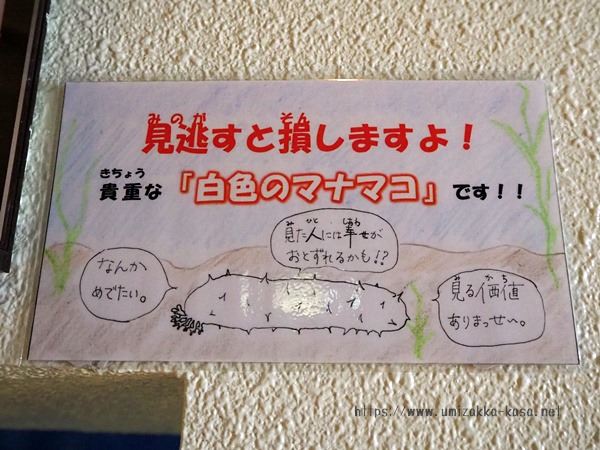 見逃すと損しますよ！
みのが そん
貴重な『白色のマナマコ』です！！
きちょう
見た人には幸せが
み ひと しあわ
おとずれるかも!?
なんか
めでたい。
見る価値
み かち
ありまっせ〜。
https://www.umizakka-kasa.net